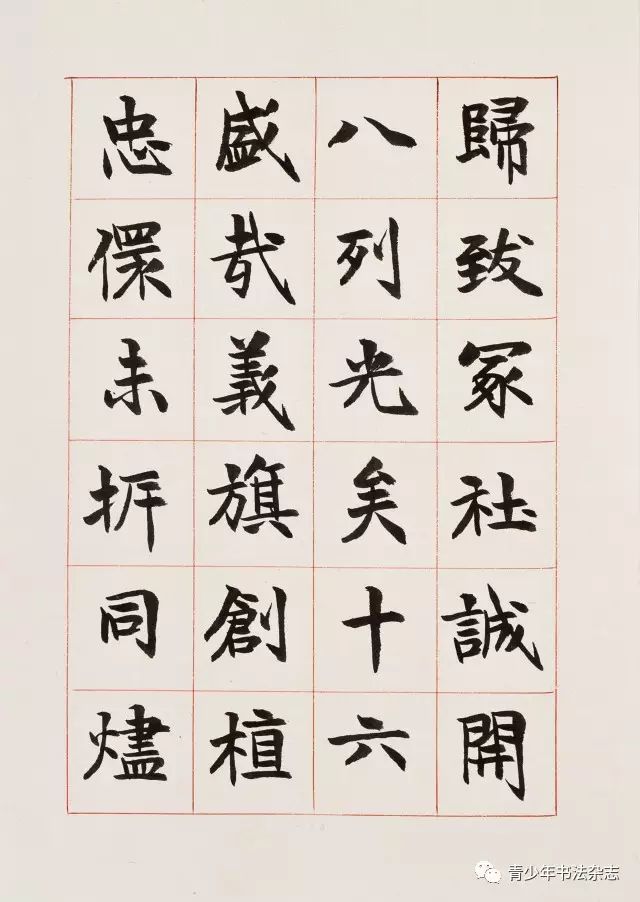 歸致冢社誠開
八列光矣十六
盛哉義旗創植
忠儇未拆同燼
青少年书法杂志